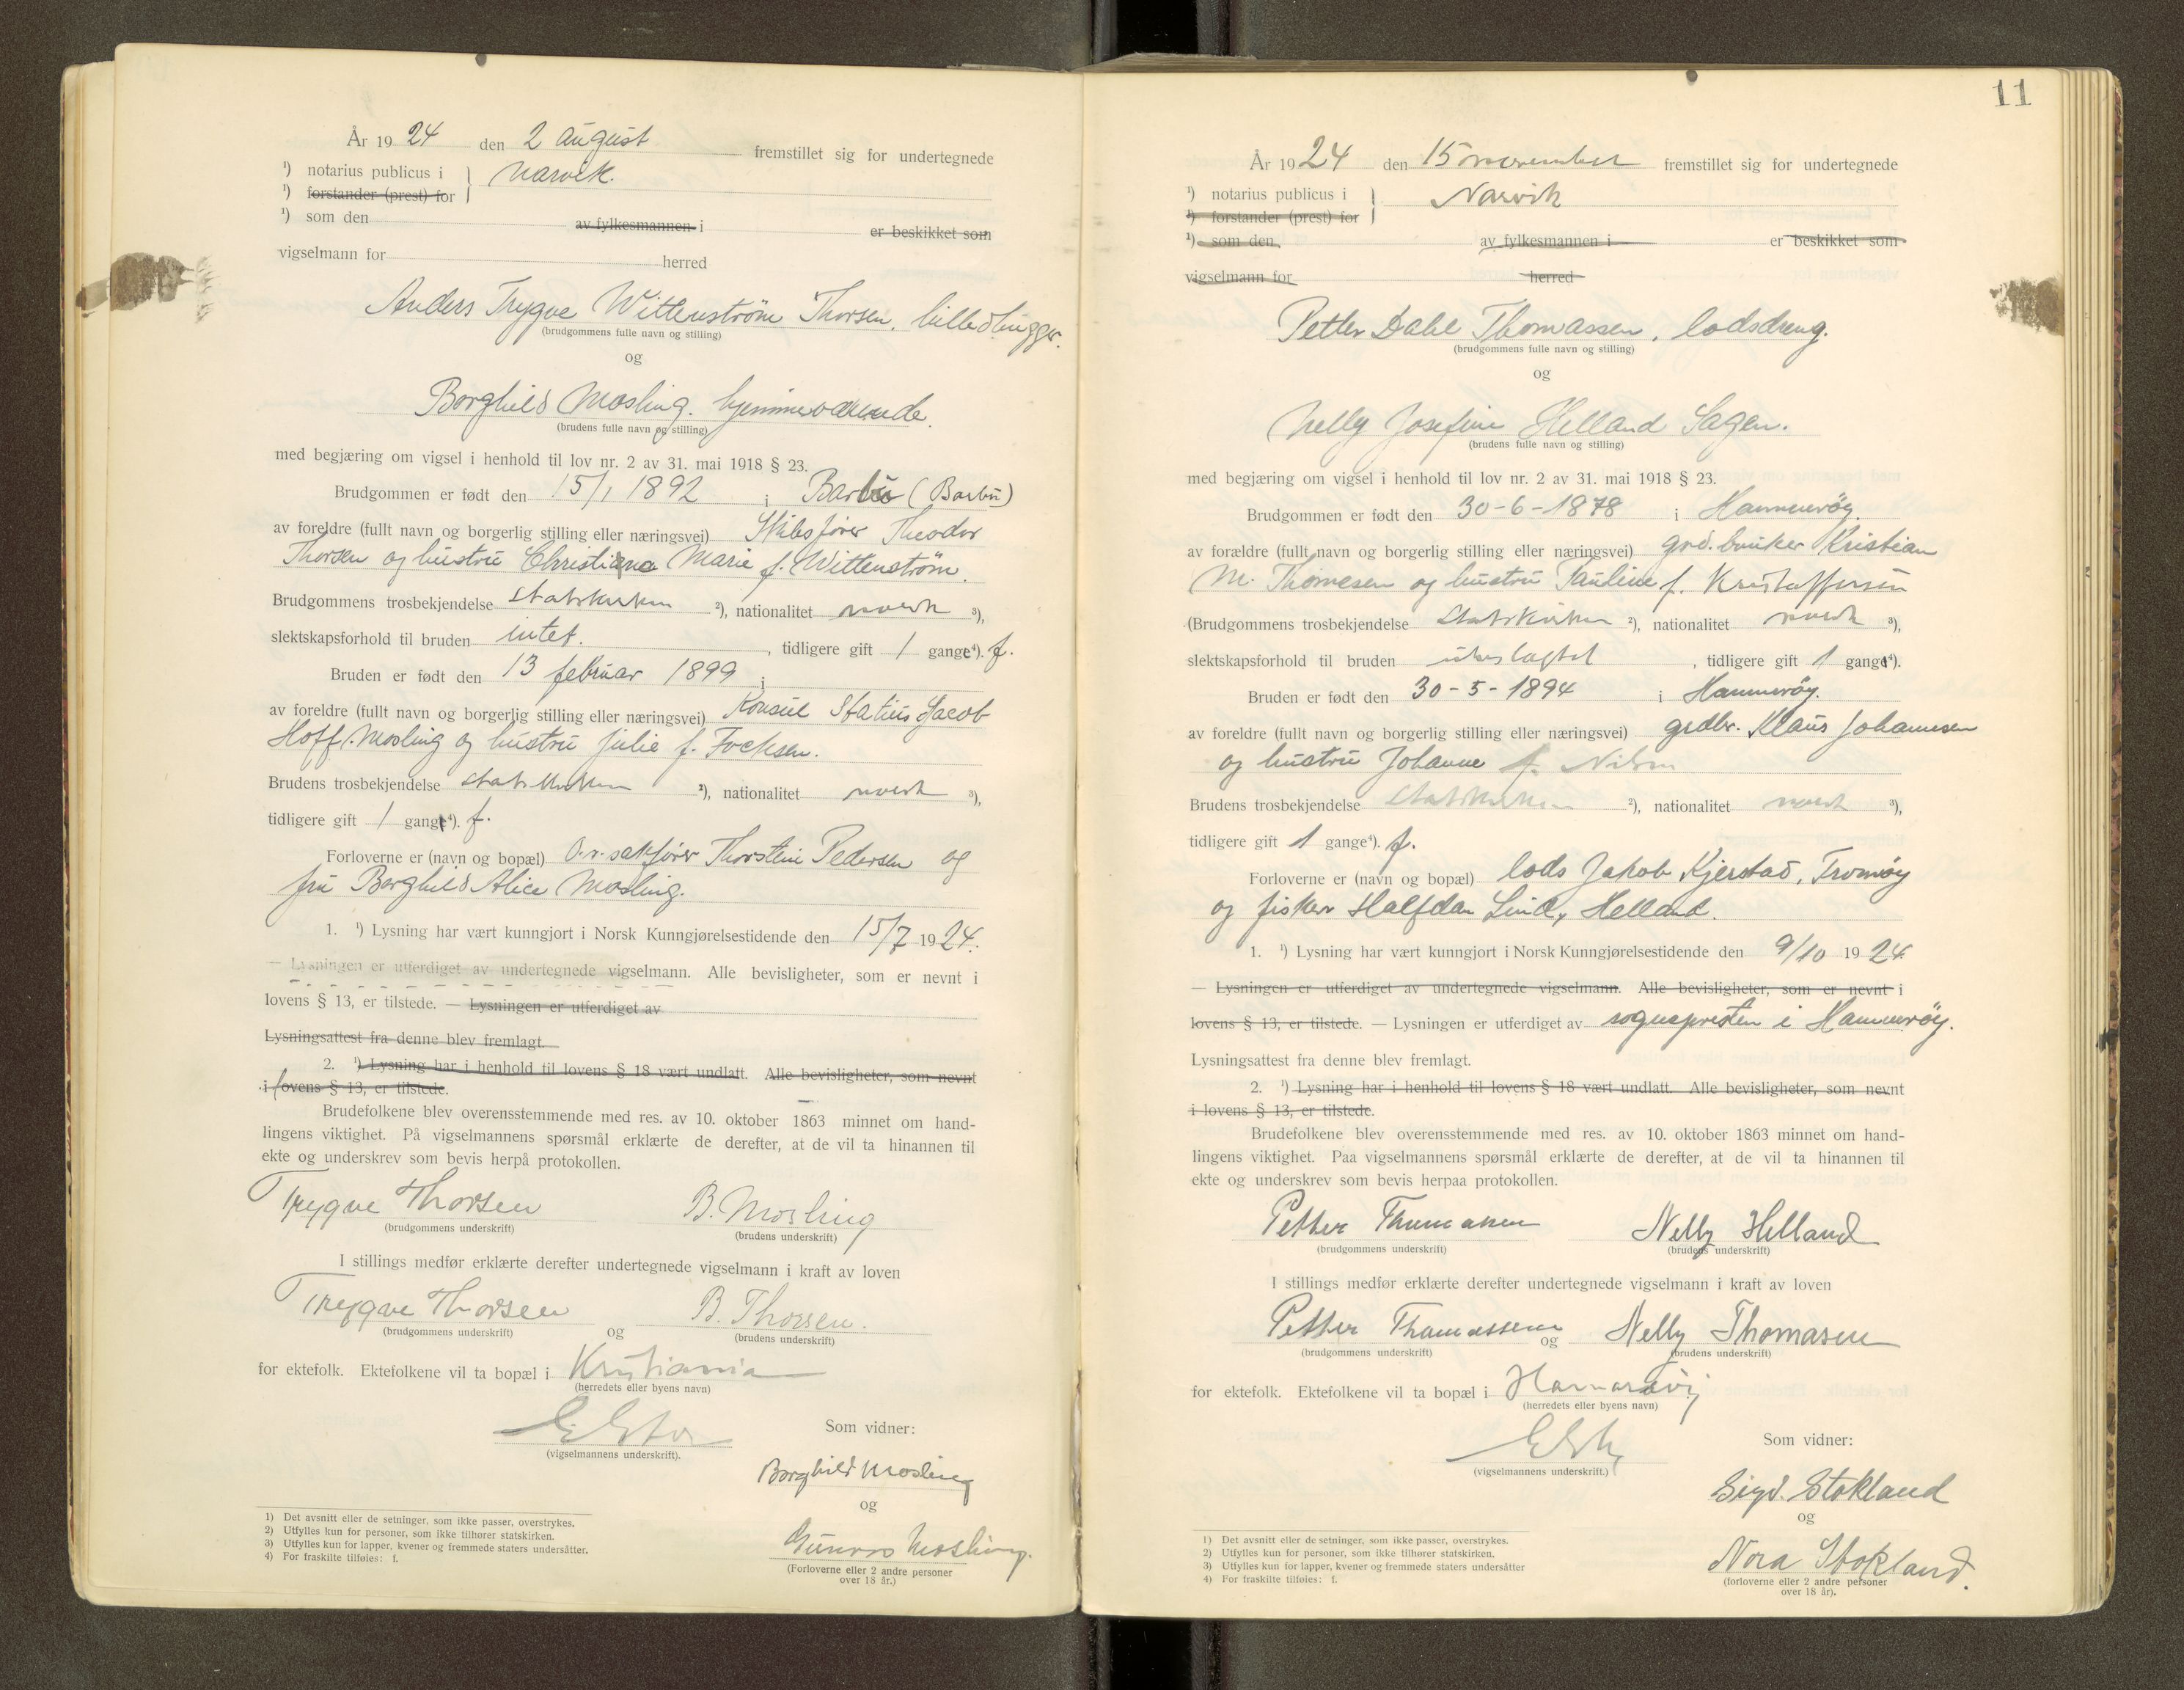 År 1924 den 2 august fremstillet sig for undertegnede
¹) notarius publicus i } Narvik.
¹) forstander (prest) for
¹) som den av fylkesmannen i er beskikket som
vigselmann for herred
Anders Trygve Wittenstrøm Thorsen, billedhugger.
(brudgommens fulle navn og stilling)
og
Borghild Mosling. hjemmeværende.
(brudens fulle navn og stilling)
med begjæring om vigsel i henhold til lov nr. 2 av 31. mai 1918 § 23.
Brudgommen er født den 15/1 1892 i Barbu (Barbu)
av foreldre (fullt navn og borgerlig stilling eller næringsvei) Skibsfører Theodor
Thorsen og hustru Christiane Marie f. Wittenstrøm.
Brudgommens trosbekjendelse statskirken ²), nationalitet norsk ³),
slektskapsforhold til bruden intet. , tidligere gift 1 gang⁴). f.
Bruden er født den 13 februar 1899 i
av foreldre (fullt navn og borgerlig stilling eller næringsvei) Konsul Statius Jacob
Hoff Mosling og hustru Julie f. Focksen.
Brudens trosbekjendelse statskirken ²), nationalitet norsk ³),
tidligere gift 1 gang⁴). f.
Forloverne er (navn og bopæl) O.r.sakfører Thorstein Pedersen og
fru Borghild Alice Mosling.
1. ¹) Lysning har vært kunngjort i Norsk Kunngjørelsestidende den 15/7 1924.
— Lysningen er utferdiget av undertegnede vigselmann. Alle bevisligheter, som er nevnt i
lovens § 13, er tilstede. — Lysningen er utferdiget av
Lysningsattest fra denne blev fremlagt.
2. ¹) Lysning har i henhold til lovens § 18 vært undlatt. Alle bevisligheter, som nevnt
i lovens § 13, er tilstede.
Brudefolkene blev overensstemmende med res. av 10. oktober 1863 minnet om hand-
lingens viktighet. På vigselmannens spørsmål erklærte de derefter, at de vil ta hinannen til
ekte og underskrev som bevis herpå protokollen.
Trygve Thorsen B. Mosling
(brudgommens underskrift) (brudens underskrift)
I stillings medfør erklærte derefter undertegnede vigselmann i kraft av loven
Trygve Thorsen og B. Thorsen.
(brudgommens underskrift) (brudens underskrift)
for ektefolk. Ektefolkene vil ta bopæl i Kristiania
(herredets eller byens navn)
Som vidner:
(vigselmannens underskrift).
Borghild Mosling
og
Mosling.
(Forloverne eller 2 andre personer
over 18 år.)
1) Det avsnitt eller de setninger, som ikke passer, overstrykes.
2) Utfylles kun for personer, som ikke tilhører statskirken.
3) Utfylles kun for lapper, kvener og fremmede staters undersåtter.
4) For fraskilte tilføies: f.
11
År 1924 den 15 november fremstillet sig for undertegnede
¹) notarius publicus i } Narvik
¹) forstander (prest) for
¹) som den av fylkesmannen i er beskikket som
vigselmann for herred
Petter Dahl Thomassen, lodsdreng.
(brudgommens fulle navn og stilling)
og
Nelly Josefine Helland Sagen.
(brudens fulle navn og stilling)
med begjæring om vigsel i henhold til lov nr. 2 av 31. mai 1918 § 23.
Brudgommen er født den 30-6-1878 i Hammerøy.
av forældre (fullt navn og borgerlig stilling eller næringsvei) grd.bruker Kristian
M. Thomesen og hustru Pauline f. Kristoffersen
(Brudgommens trosbekjendelse Statskirken ²), nationalitet norsk ³),
slektskapsforhold til bruden ubeslagtet , tidligere gift 1 gang⁴).
Bruden er født den 30-5-1894 i Hammerøy.
av foreldre (fullt navn og borgerlig stilling eller næringsvei) grdbr. Klaus Johannesen
og hustru Johanne f. Nilsen
Brudens trosbekjendelse Statskirken ²), nationalitet norsk ³),
tidligere gift 1 gange⁴). f.
Forloverne er (navn og bopæl) lods Jakob Kjerstad, Tranøy
og fisker Halfdan Lind, Helland.
1. ¹) Lysning har vært kunngjort i Norsk Kunngjørelsestidende den 9/10 1924
— Lysningen er utferdiget av undertegnede vigselmann. Alle bevisligheter, som er nevnt i
lovens § 13, er tilstede. — Lysningen er utferdiget av sognepresten i Hammerøy.
Lysningsattest fra denne blev fremlagt.
2. ¹) Lysning har i henhold til lovens § 18 vært undlatt. Alle bevisligheter, som nevnt
i lovens § 13, er tilstede.
Brudefolkene blev overensstemmende med res. av 10. oktober 1863 minnet om hand-
lingens viktighet. Paa vigselmannens spørsmål erklærte de derefter, at de vil ta hinannen til
ekte og underskrev som bevis herpaa protokollen.
Petter Thomassen Nelly Helland
(brudgommens underskrift) (brudens underskrift)
I stillings medfør erklærte derefter undertegnede vigselmann i kraft av loven
Petter Thomassen og Nelly Thomasen
(brudgommens underskrift) (brudens underskrift)
for ektefolk. Ektefolkene vil ta bopæl i Hamarøy
(herredets eller byens navn)
Som vidner:
(vigselmannens underskrift.)
Sigv. Stokland
og
Nora Stokland.
(forloverne eller 2 andre personer
over 18 år).
1) Det avsnitt eller de setninger, som ikke passer, overstrykes.
2) Utfylles kun for personer, som ikke tilhører statskirken.
3) Utfylles kun for lapper, kvener og fremmede staters undersåtter
4) For fraskilte tilføies: f.